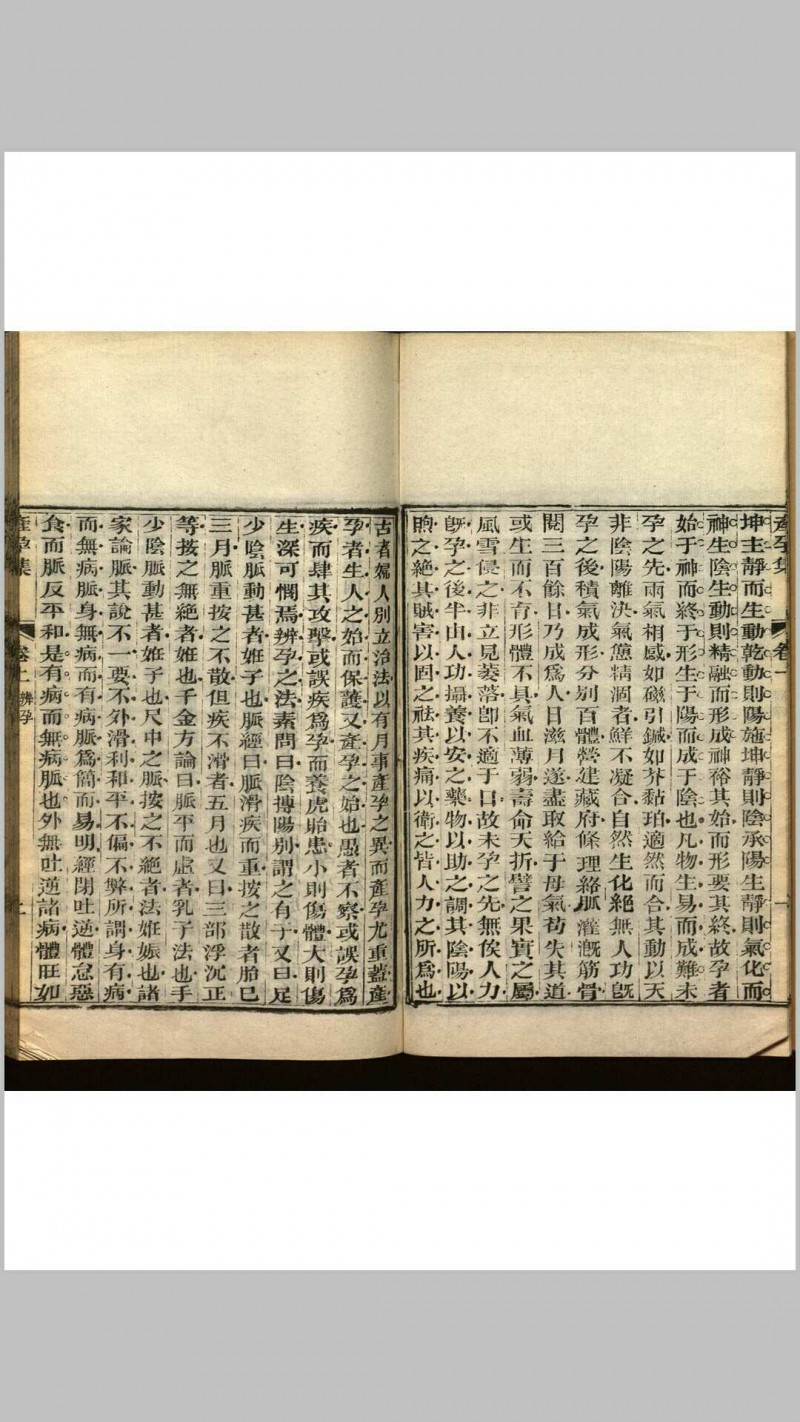 產孕集 卷一 一
坤主靜而生動乾動則陽施坤靜則陰承陽生靜則氣化而
神生陰生動則精融而形成神裕其始而形要其終故孕者
始于神而終于形生于陽而成于陰也凡物生易而成難未
孕之先兩氣相感如磁引鍼如芥黏珀適然而合其動以天
非陰陽離決氣憊精涸者鮮不凝合自然生化絕無人功既
孕之後積氣成形分別百體營建藏府條理絡脈灌漑筋骨
閱三百餘日乃成爲人日滋月遂盡取給于母氣苟失其道
或生而不育形體不具氣血薄弱壽命夭折譬之果實之屬
風雪侵之非立見萎落卽不適于口故未孕之先無俟人力
旣孕之後半由人功攝養以安之藥物以助之調其陰陽以
煦之絕其賊害以固之祛其疾痛以衛之皆人力之所爲也
古者婦人別立治法以有月事產孕之異而產孕尤重蓋產
孕者生人之始而保護又產孕之始也愚者不察或誤孕爲
疾而肆其攻擊或誤疾爲孕而養虎貽患小則傷體大則傷
生深可憫焉辨孕之法素問曰陰搏陽別謂之有子又曰足
少陰脈動甚者姙子也脈經曰脈滑疾而重按之散者胎已
三月脈重按之不散但疾不滑者五月也又曰三部浮沉正
等按之無絕者姙也千金方論曰脈平而虛者乳子法也手
少陰脈動甚者姙子也尺中之脈按之不絕者法姙娠也諸
家論脈其說不一要不外滑利和平不偏不弊所謂身有病
而無病脈身無病而有病脈爲簡而易明經閉吐逆體怠惡
食而脈反平和是有病而無病脈也外無吐逆諸病體旺如
產孕集 卷上 辨孕 上